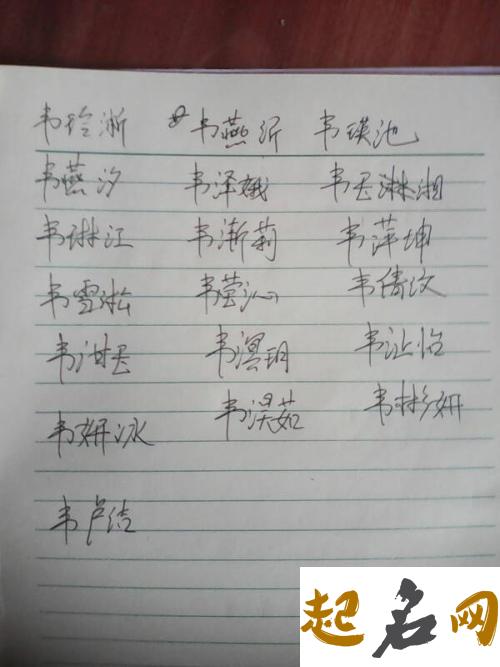 韦玲浙 韦燕沂 韦瑛池
韦燕汐 韦泽娥 韦思淋湘
韦琳江 韦渐莉 韦萍坤
韦雪淞 韦莹沁 韦倩汶
韦湘 韦溟玥 韦沚怡
韦妍冰 韦淏茹 韦彬妍
韦卢洁
起名网